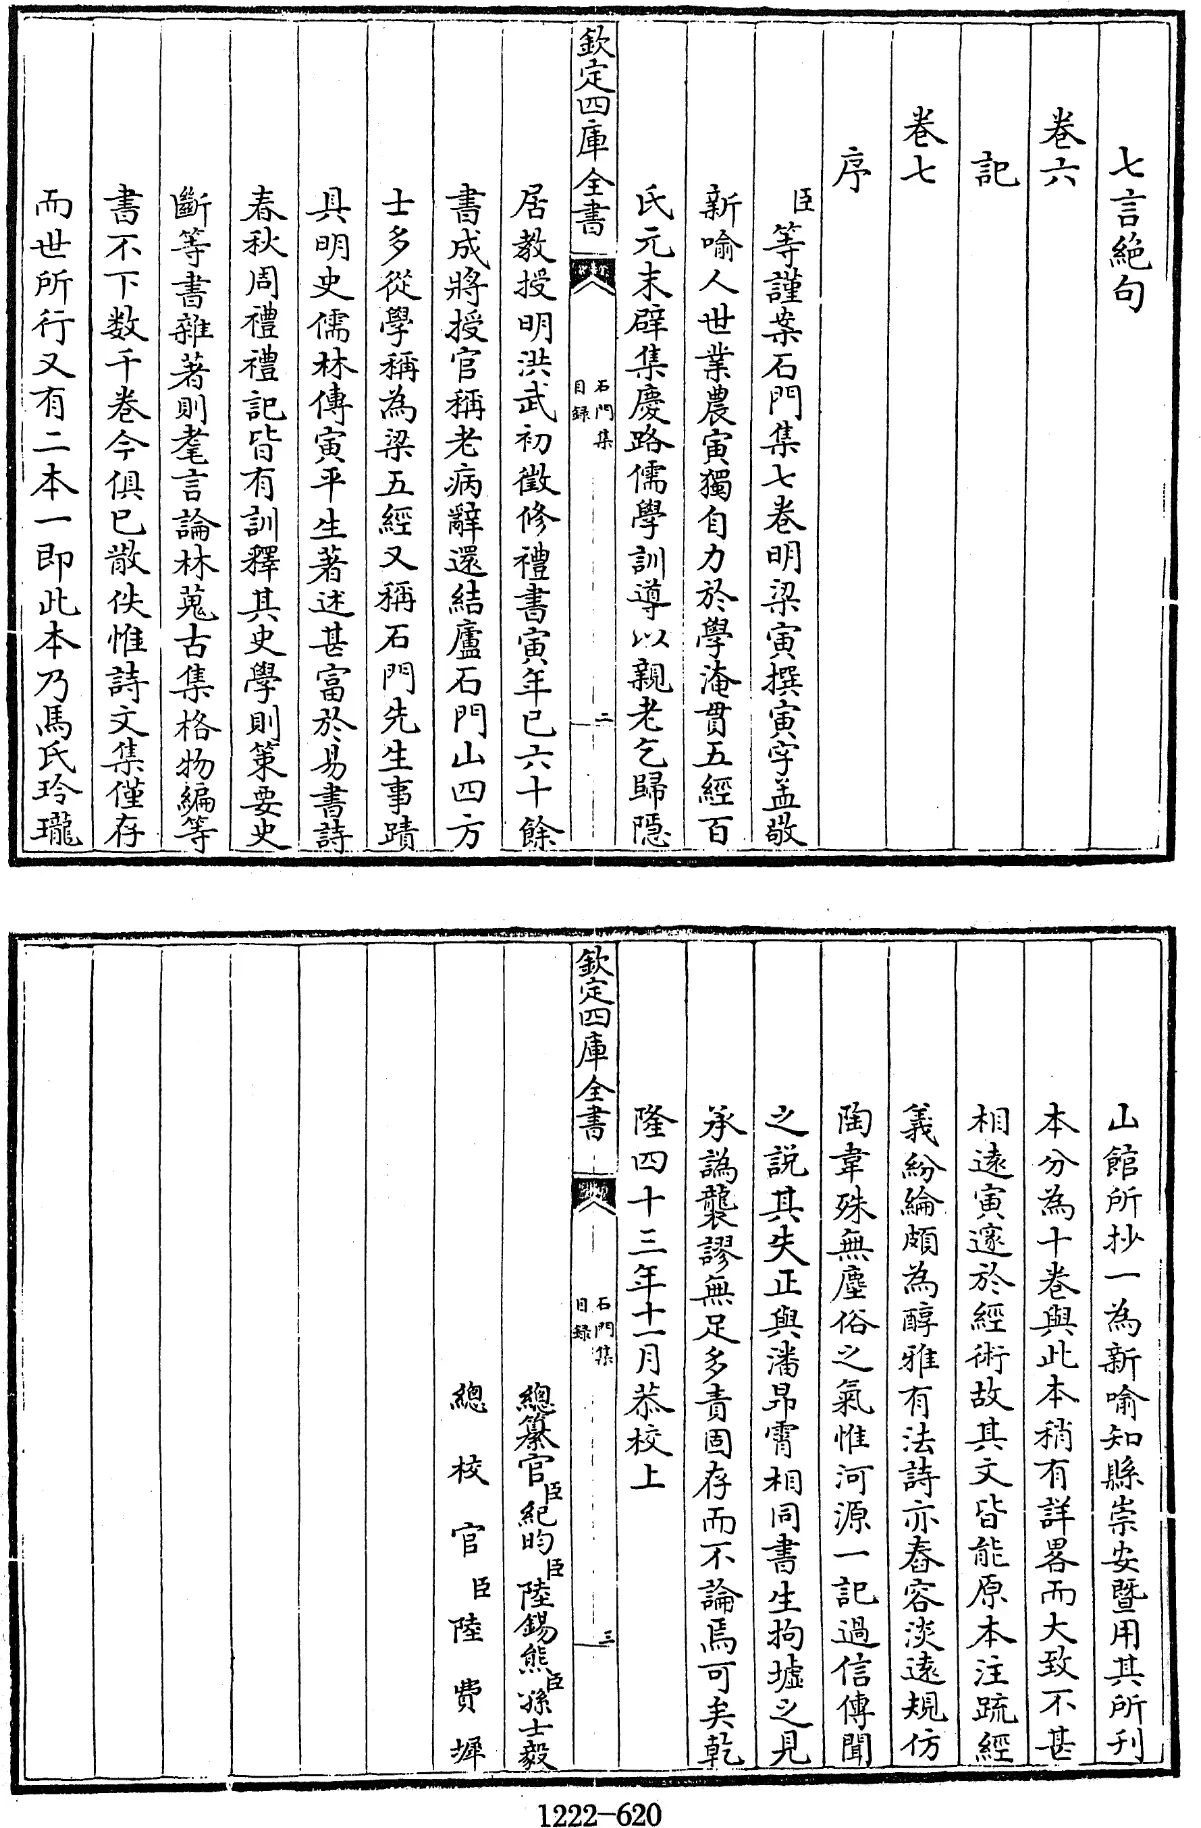 七言絶句
卷六
記
卷七
序
臣等謹案石門集七卷明梁寅撰寅字孟敬
新喻人世業農寅獨自力於學淹貫五經百
氏元末辟集慶路儒學訓導以親老乞歸隠
欽定四庫全書
石門集
目録
二
居教授明洪武初徵修禮書寅年已六十餘
書成將授官稱老病辭還結廬石門山四方
士多從學稱為梁五經又稱石門先生事蹟
具明史儒林傳寅平生著述甚富於易書詩
春秋周禮禮記皆有訓釋其史學則策要史
斷等書雜著則耄言論林蒐古集格物編等
書不下数千卷今俱已散佚惟詩文集僅存
而世所行又有二本一即此本乃馬氏玲瓏
山館所抄一為新喻知縣崇安暨用其所刋
本分為十卷與此本稍有詳畧而大致不甚
相遠寅邃於經術故其文皆能原本注疏經
義紛綸頗為醇雅有法詩亦舂容淡遠規仿
陶韋殊無塵俗之氣惟河源一記過信傳聞
之説其失正與潘昂霄相同書生拘墟之見
承譌襲謬無足多責固存而不論焉可矣乾
隆四十三年十一月恭校上
欽定四庫全書
石門集
目録
三
總纂官臣紀昀臣陸錫熊臣孫士毅
總校官臣陸費墀
1222-620